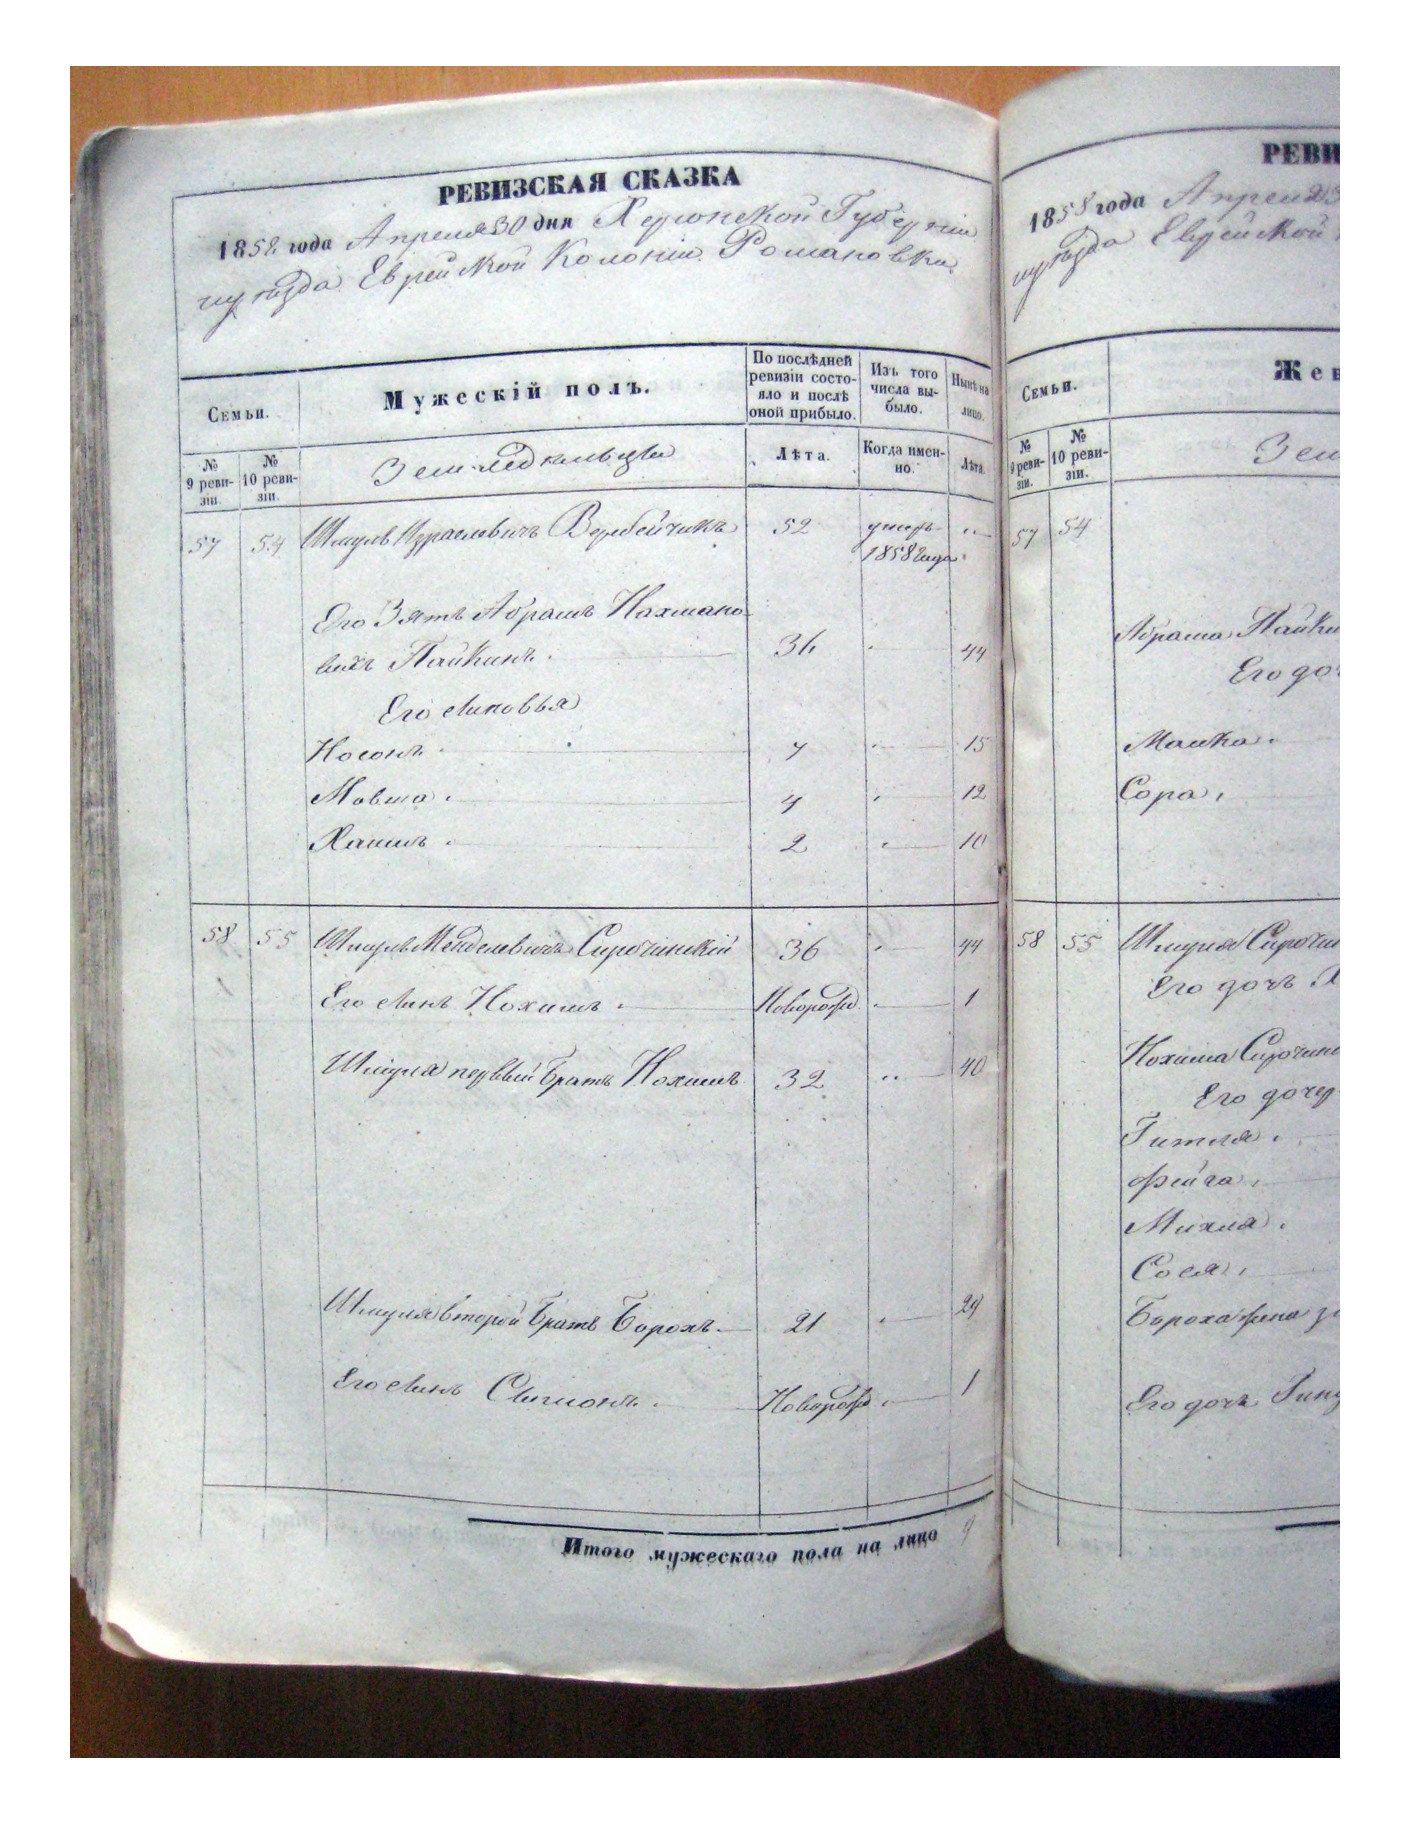 РЕВИЗСКАЯ СКАЗКА
1858 года Апреля 30 дня Херсонской Губерніи
и уѣзда Еврейской Колоніи Романовки.
Семьи.
Мужескій полъ.
По послѣдней ревизіи состояло и послѣ оной прибыло.
Изъ того числа выбыло.
Нынѣ на лицо.
№ 9 ревизіи.
№ 10 ревизіи.
Земледѣльцы
Лѣта.
Когда именно.
Лѣта.
57 54 Шмуль Израелевичъ Вербейчикъ 52 умеръ
1858 года
Его Зять Абрамъ Нахмано-
вичъ Пайкинъ. 36 44
Его сыновья
Носонъ 7 15
Мовша 4 12
Хаимъ 2 10
58 55 Шмуль Менделевичъ Сирочинскій 36 44
Его сынъ Нохимъ Новорожд 1
Шмуля первый Братъ Нохимъ 32 40
Шмуля второй Братъ Борохъ 21 29
Его сынъ Симонъ. Новорожд 1
Итого мужескаго пола на лицо 9
РЕВИ
1858 года Апреля 3
и уѣзда Еврейской
Семьи.
Жен
№ 9 ревизіи.
№ 10 ревизіи.
Зем
57 54
Абрама Пайки
Его доч
Малка.
Сора,
58 55 Шмуля Сирочин
Его дочь Х
Нохима Сирочинс
Его дочер
Гитля,
Фейга,
Михля,
Сося,
Бороха жена
Его дочь